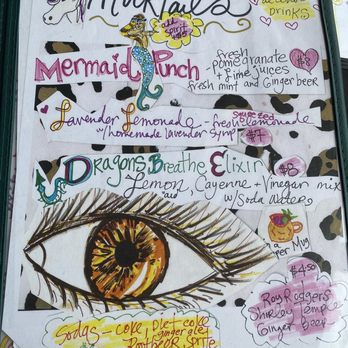 MockTails
all
Spirit
drinks
Mermaid Punch
fresh
pomegranate
+ Lime juices
fresh mint and Ginger beer
$8
Lavender Lemonade - fresh squeezed lemonade
w/homemade lavender syrup $7
Dragons Breathe Elixir $8
Lemon, Cayenne + Vinegar mix
w/Soda Water
in a
Mug
$4.50
Roy Rodgers
Shirley Temple
Ginger Beer
Sodas - coke, Diet coke
ginger ale
Root Beer Sprite